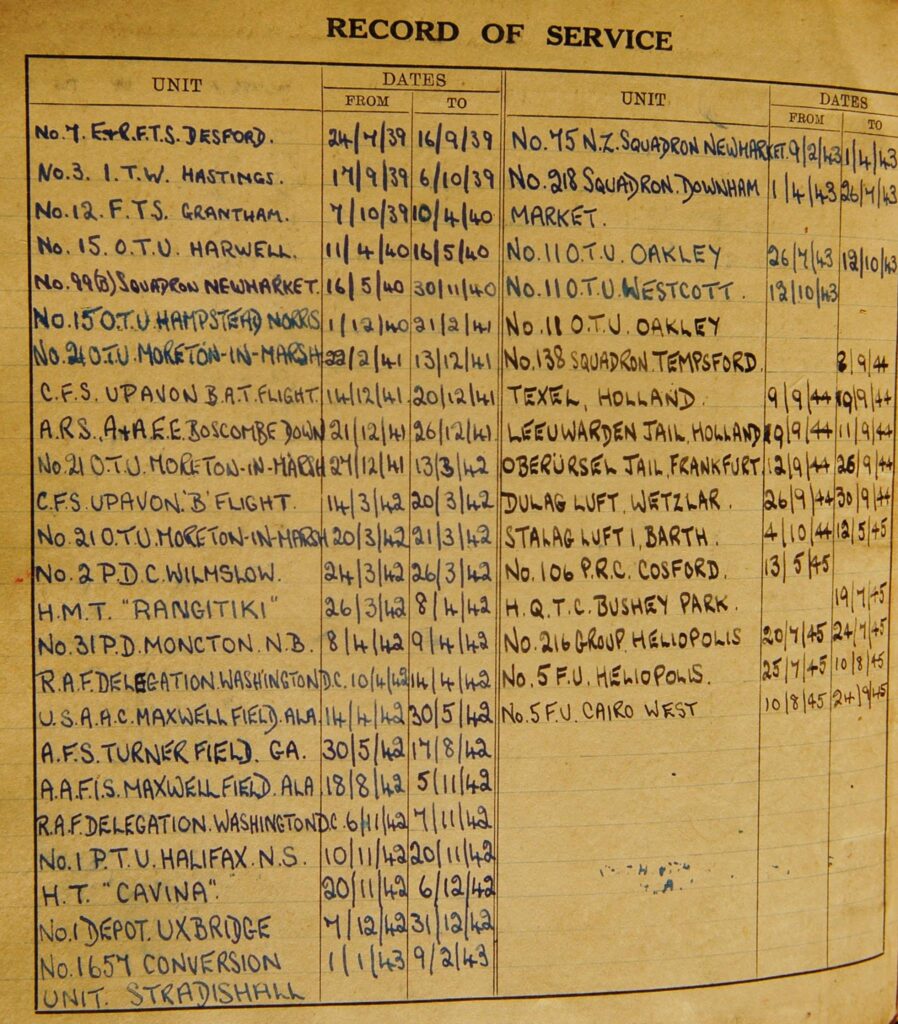 RECORD OF SERVICE
UNIT DATES
FROM TO
No. 7. E&R.F.T.S. DESFORD. 24/7/39 16/9/39
No. 3. I.T.W. HASTINGS. 17/9/39 6/10/39
No. 12. F.T.S. GRANTHAM. 7/10/39 10/4/40
No. 15. O.T.U. HARWELL. 11/4/40 16/5/40
No. 99(B) SQUADRON NEWMARKET. 16/5/40 30/11/40
No. 15 O.T.U. HAMPSTEAD NORRIS 1/12/40 21/2/41
No. 21 O.T.U. MORETON-IN-MARSH 22/2/41 13/12/41
C.F.S. UPAVON B.A.T. FLIGHT. 14/12/41 20/12/41
A.R.S., A&A.E.E. BOSCOMBE DOWN 21/12/41 26/12/41
No. 21 O.T.U. MORETON-IN-MARSH 27/12/41 13/3/42
C.F.S. UPAVON 'B' FLIGHT. 14/3/42 20/3/42
No. 21 O.T.U. MORETON-IN-MARSH 20/3/42 21/3/42
No. 2 P.D.C. WILMSLOW. 24/3/42 26/3/42
H.M.T. "RANGITIKI" 26/3/42 8/4/42
No. 31 P.D. MONCTON. N.B. 8/4/42 9/4/42
R.A.F. DELEGATION. WASHINGTON D.C. 10/4/42 14/4/42
U.S.A.A.C. MAXWELL FIELD. ALA. 14/4/42 30/5/42
A.F.S. TURNER FIELD. GA. 30/5/42 17/8/42
A.A.F.I.S. MAXWELL FIELD. ALA 18/8/42 5/11/42
R.A.F. DELEGATION. WASHINGTON D.C. 6/11/42 7/11/42
No. 1 P.T.U. HALIFAX. N.S. 10/11/42 20/11/42
H.T. "CAVINA". 20/11/42 6/12/42
No. 1 DEPOT. UXBRIDGE 7/12/42 31/12/42
No. 1657 CONVERSION 1/1/43 9/2/43
UNIT. STRADISHALL
UNIT DATES
FROM TO
No. 75 N.Z. SQUADRON NEWMARKET. 9/2/43 1/4/43
No. 218 SQUADRON. DOWNHAM 1/4/43 26/7/43
MARKET.
No. 11 O.T.U. OAKLEY 26/7/43 12/10/43
No. 11 O.T.U. WESTCOTT. 12/10/43
No. 11 O.T.U. OAKLEY
No. 138 SQUADRON. TEMPSFORD. 8/9/44
TEXEL, HOLLAND. 9/9/44 10/9/44
LEEUWARDEN JAIL, HOLLAND 10/9/44 11/9/44
OBERÜRSEL JAIL, FRANKFURT. 12/9/44 25/9/44
DULAG LUFT, WETZLAR. 26/9/44 30/9/44
STALAG LUFT 1, BARTH. 4/10/44 12/5/45
No. 106 P.R.C. COSFORD. 13/5/45
H.Q.T.C. BUSHEY PARK. 19/7/45
No. 216 GROUP. HELIOPOLIS 20/7/45 24/7/45
No. 5 F.U. HELIOPOLIS. 25/7/45 10/8/45
No. 5 F.U. CAIRO WEST 10/8/45 24/9/45